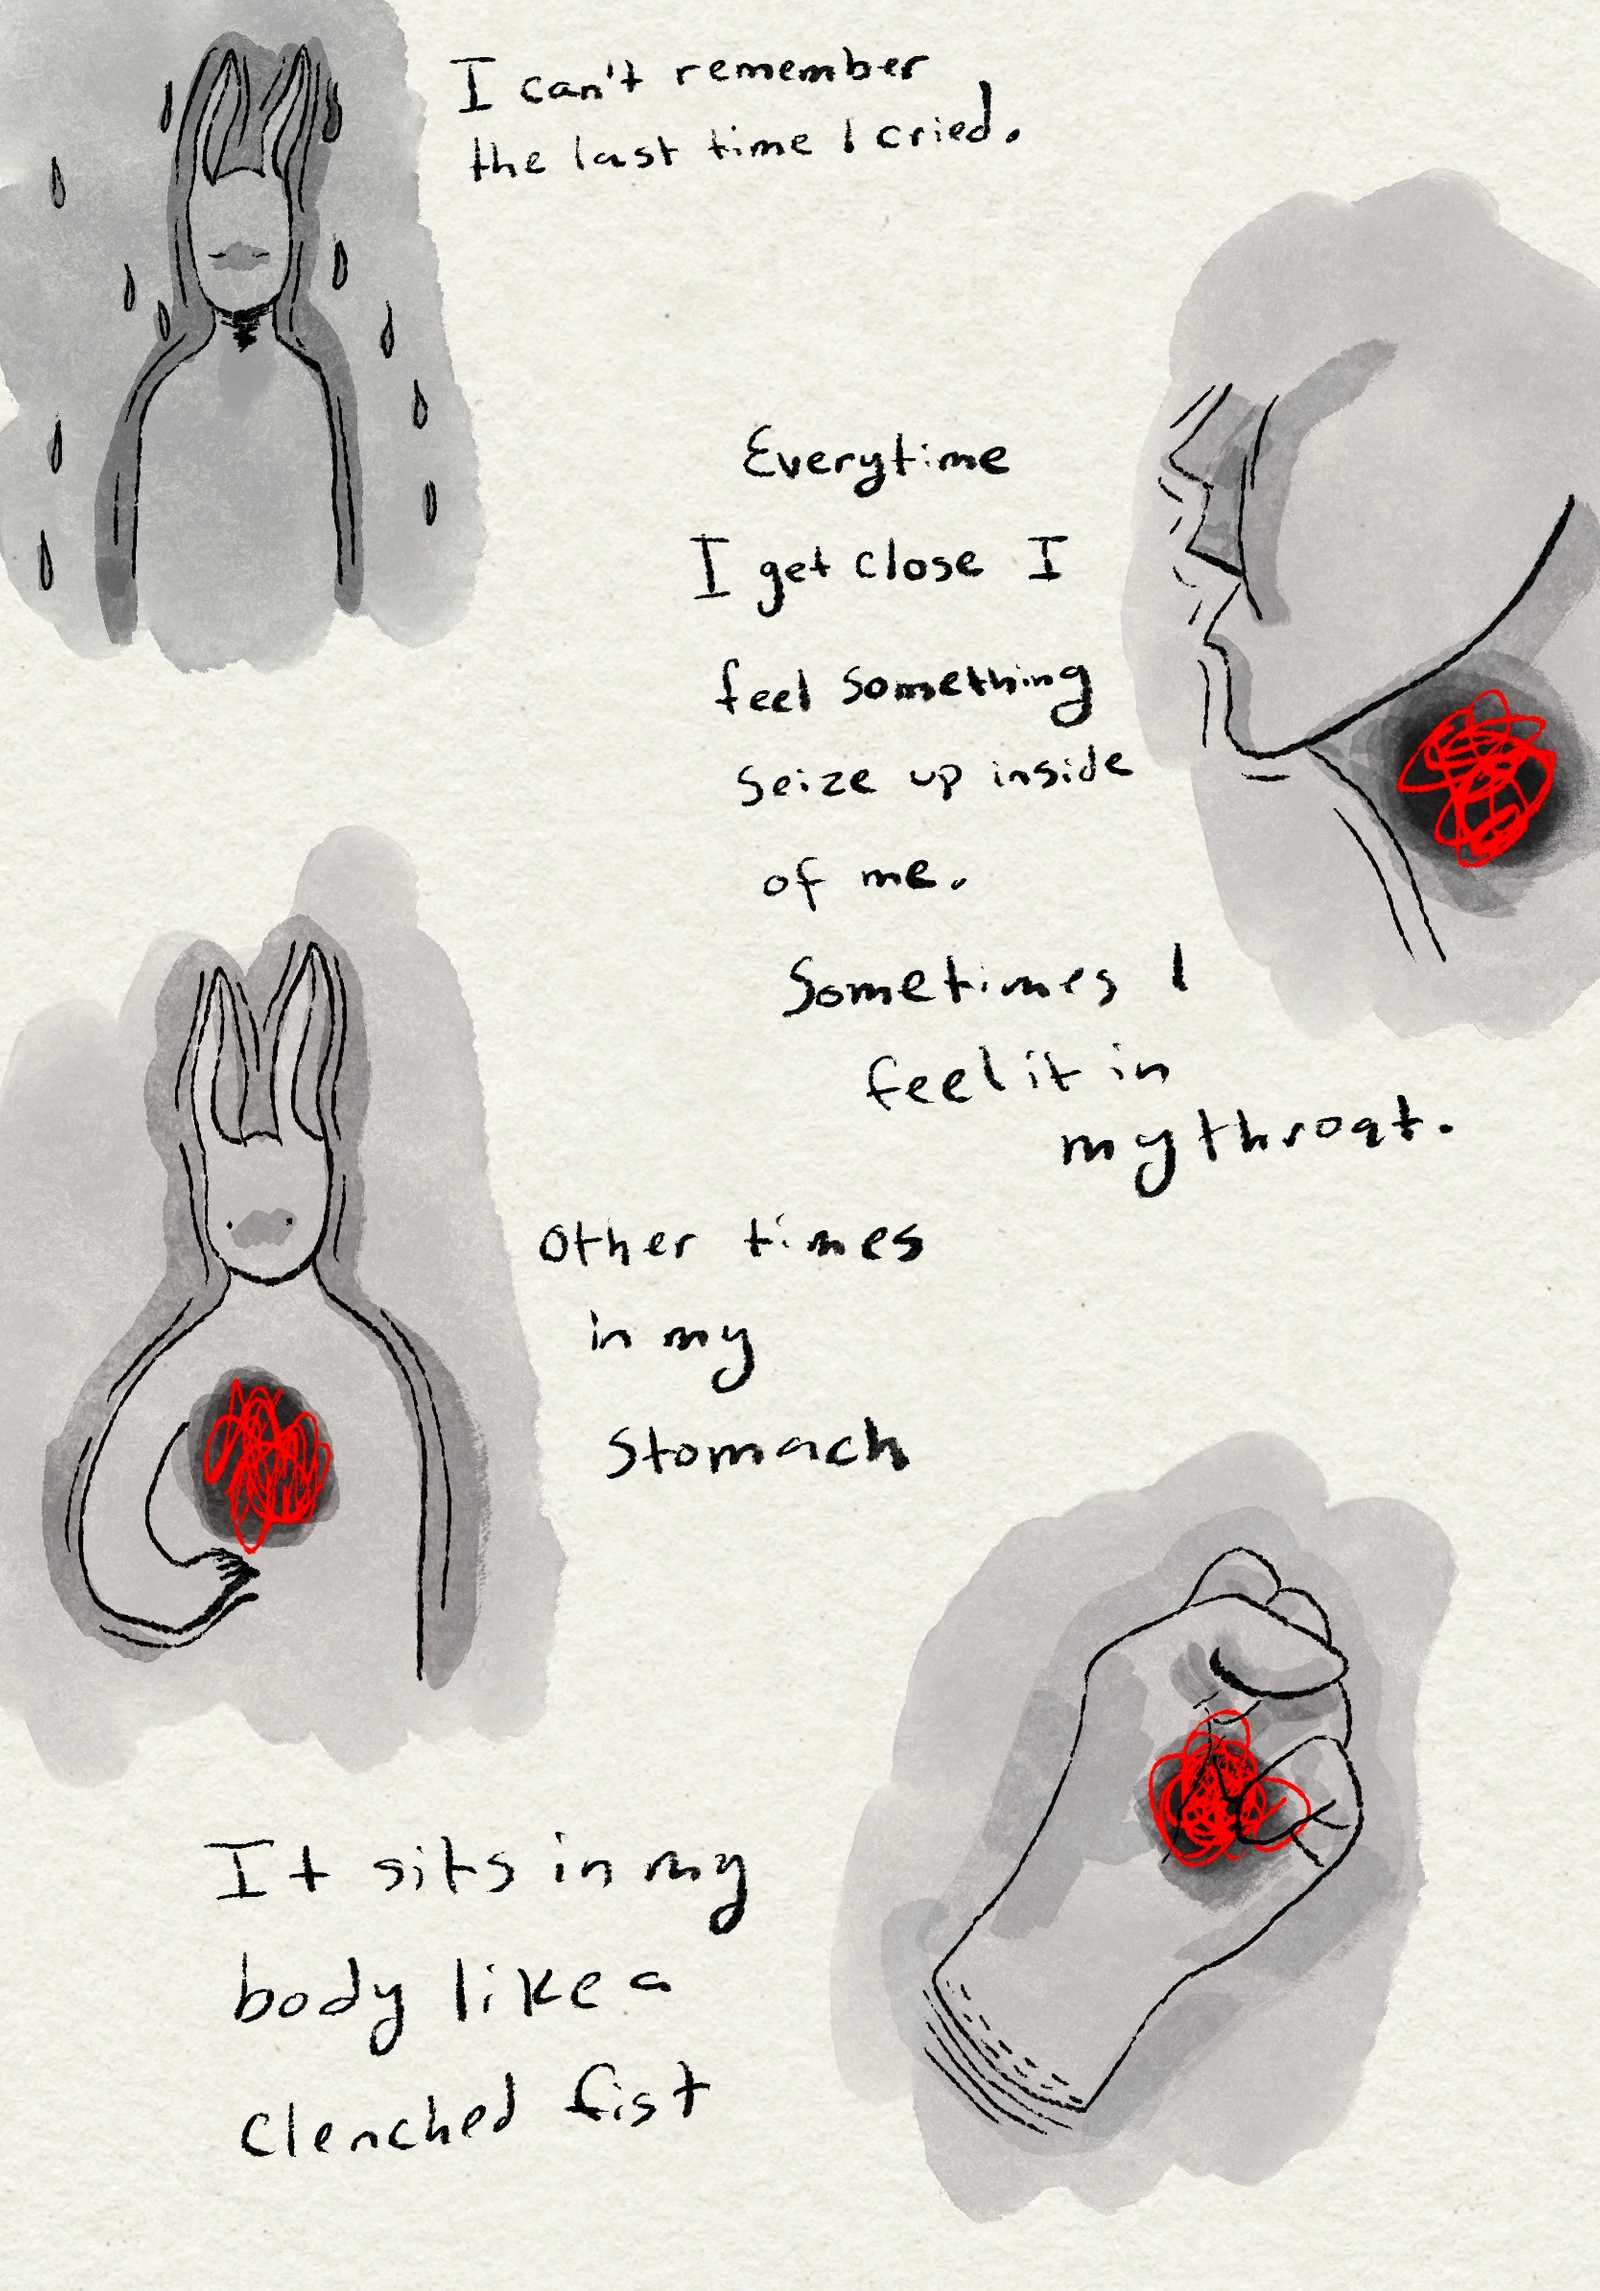 I can't remember
the last time I cried.
Everytime
I get close I
feel something
seize up inside
of me.
Sometimes I
feel it in
my throat.
Other times
in my
stomach
It sits in my
body like a
clenched fist